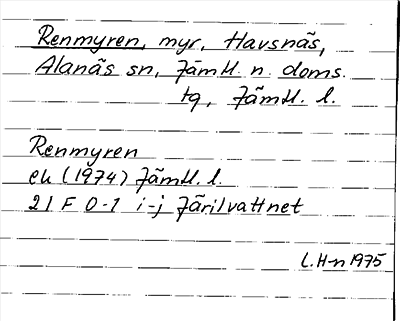 Renmyren, myr, Havsnäs,
Alanäs sn, Jämtl. n. doms.
tg, Jämtl. l.
Renmyren
ek (1974) Jämtl. l.
21 F 0-1 i-j Järilvattnet
L.H-n 1975